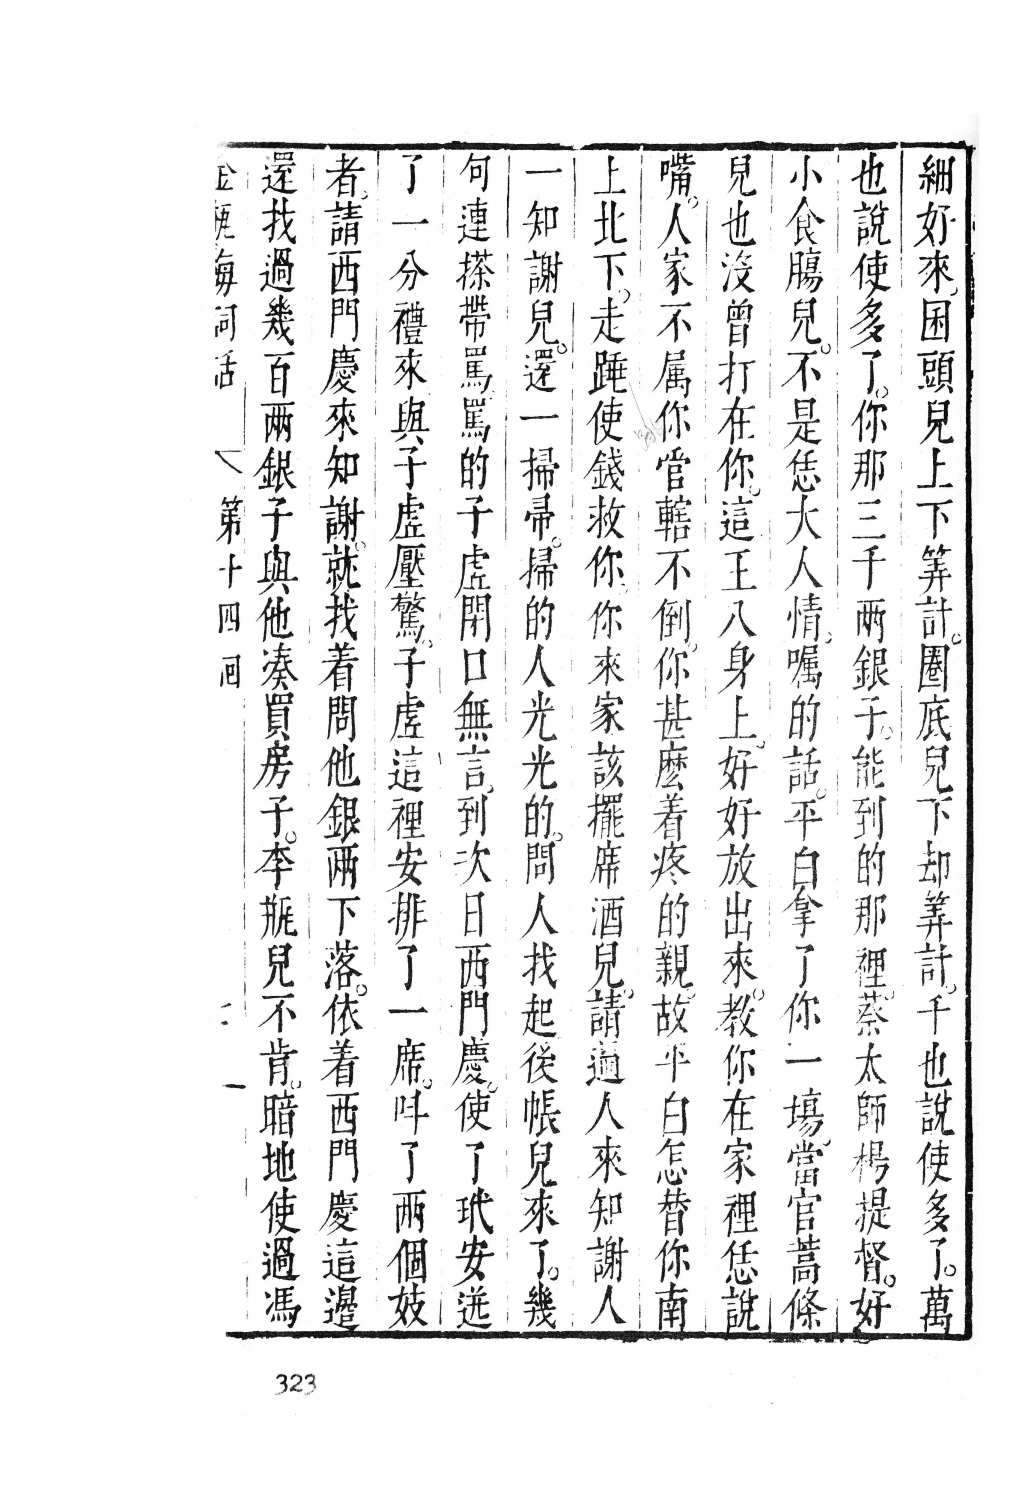 細好來。囷頭兒上下筭計。圈底兒下却筭計。千也說使多了。萬
也說使多了。你那三千兩銀子。能到的那裡。蔡太師楊提督。好
小食膓兒。不是恁大人情。囑的話。平白拿了你一塲。當官蒿條
兒也沒曾打在你。這王八身上。好好放出來。教你在家裡恁說
嘴。人家不属你管轄。不倒你甚麽着疼的親。故平白怎替你南
上北下。走踵使錢救你。你來家該擺席酒兒。請過人來知謝人
一知謝兒。還一掃帚。掃的人光光的。問人找起後帳兒來了。幾
句連搽帶罵。罵的子虛閉口無言。到次日西門慶。使了玳安送
了一分禮來與子虛壓驚。子虛這裡安排了一席。叫了兩個妓
者。請西門慶來知謝。就找着問他銀兩下落。依着西門慶這邊
還找過幾百兩銀子與他凑買房子。李瓶兒不肯。暗地使過馮
金瓶梅詞話 第十四囘 一
323